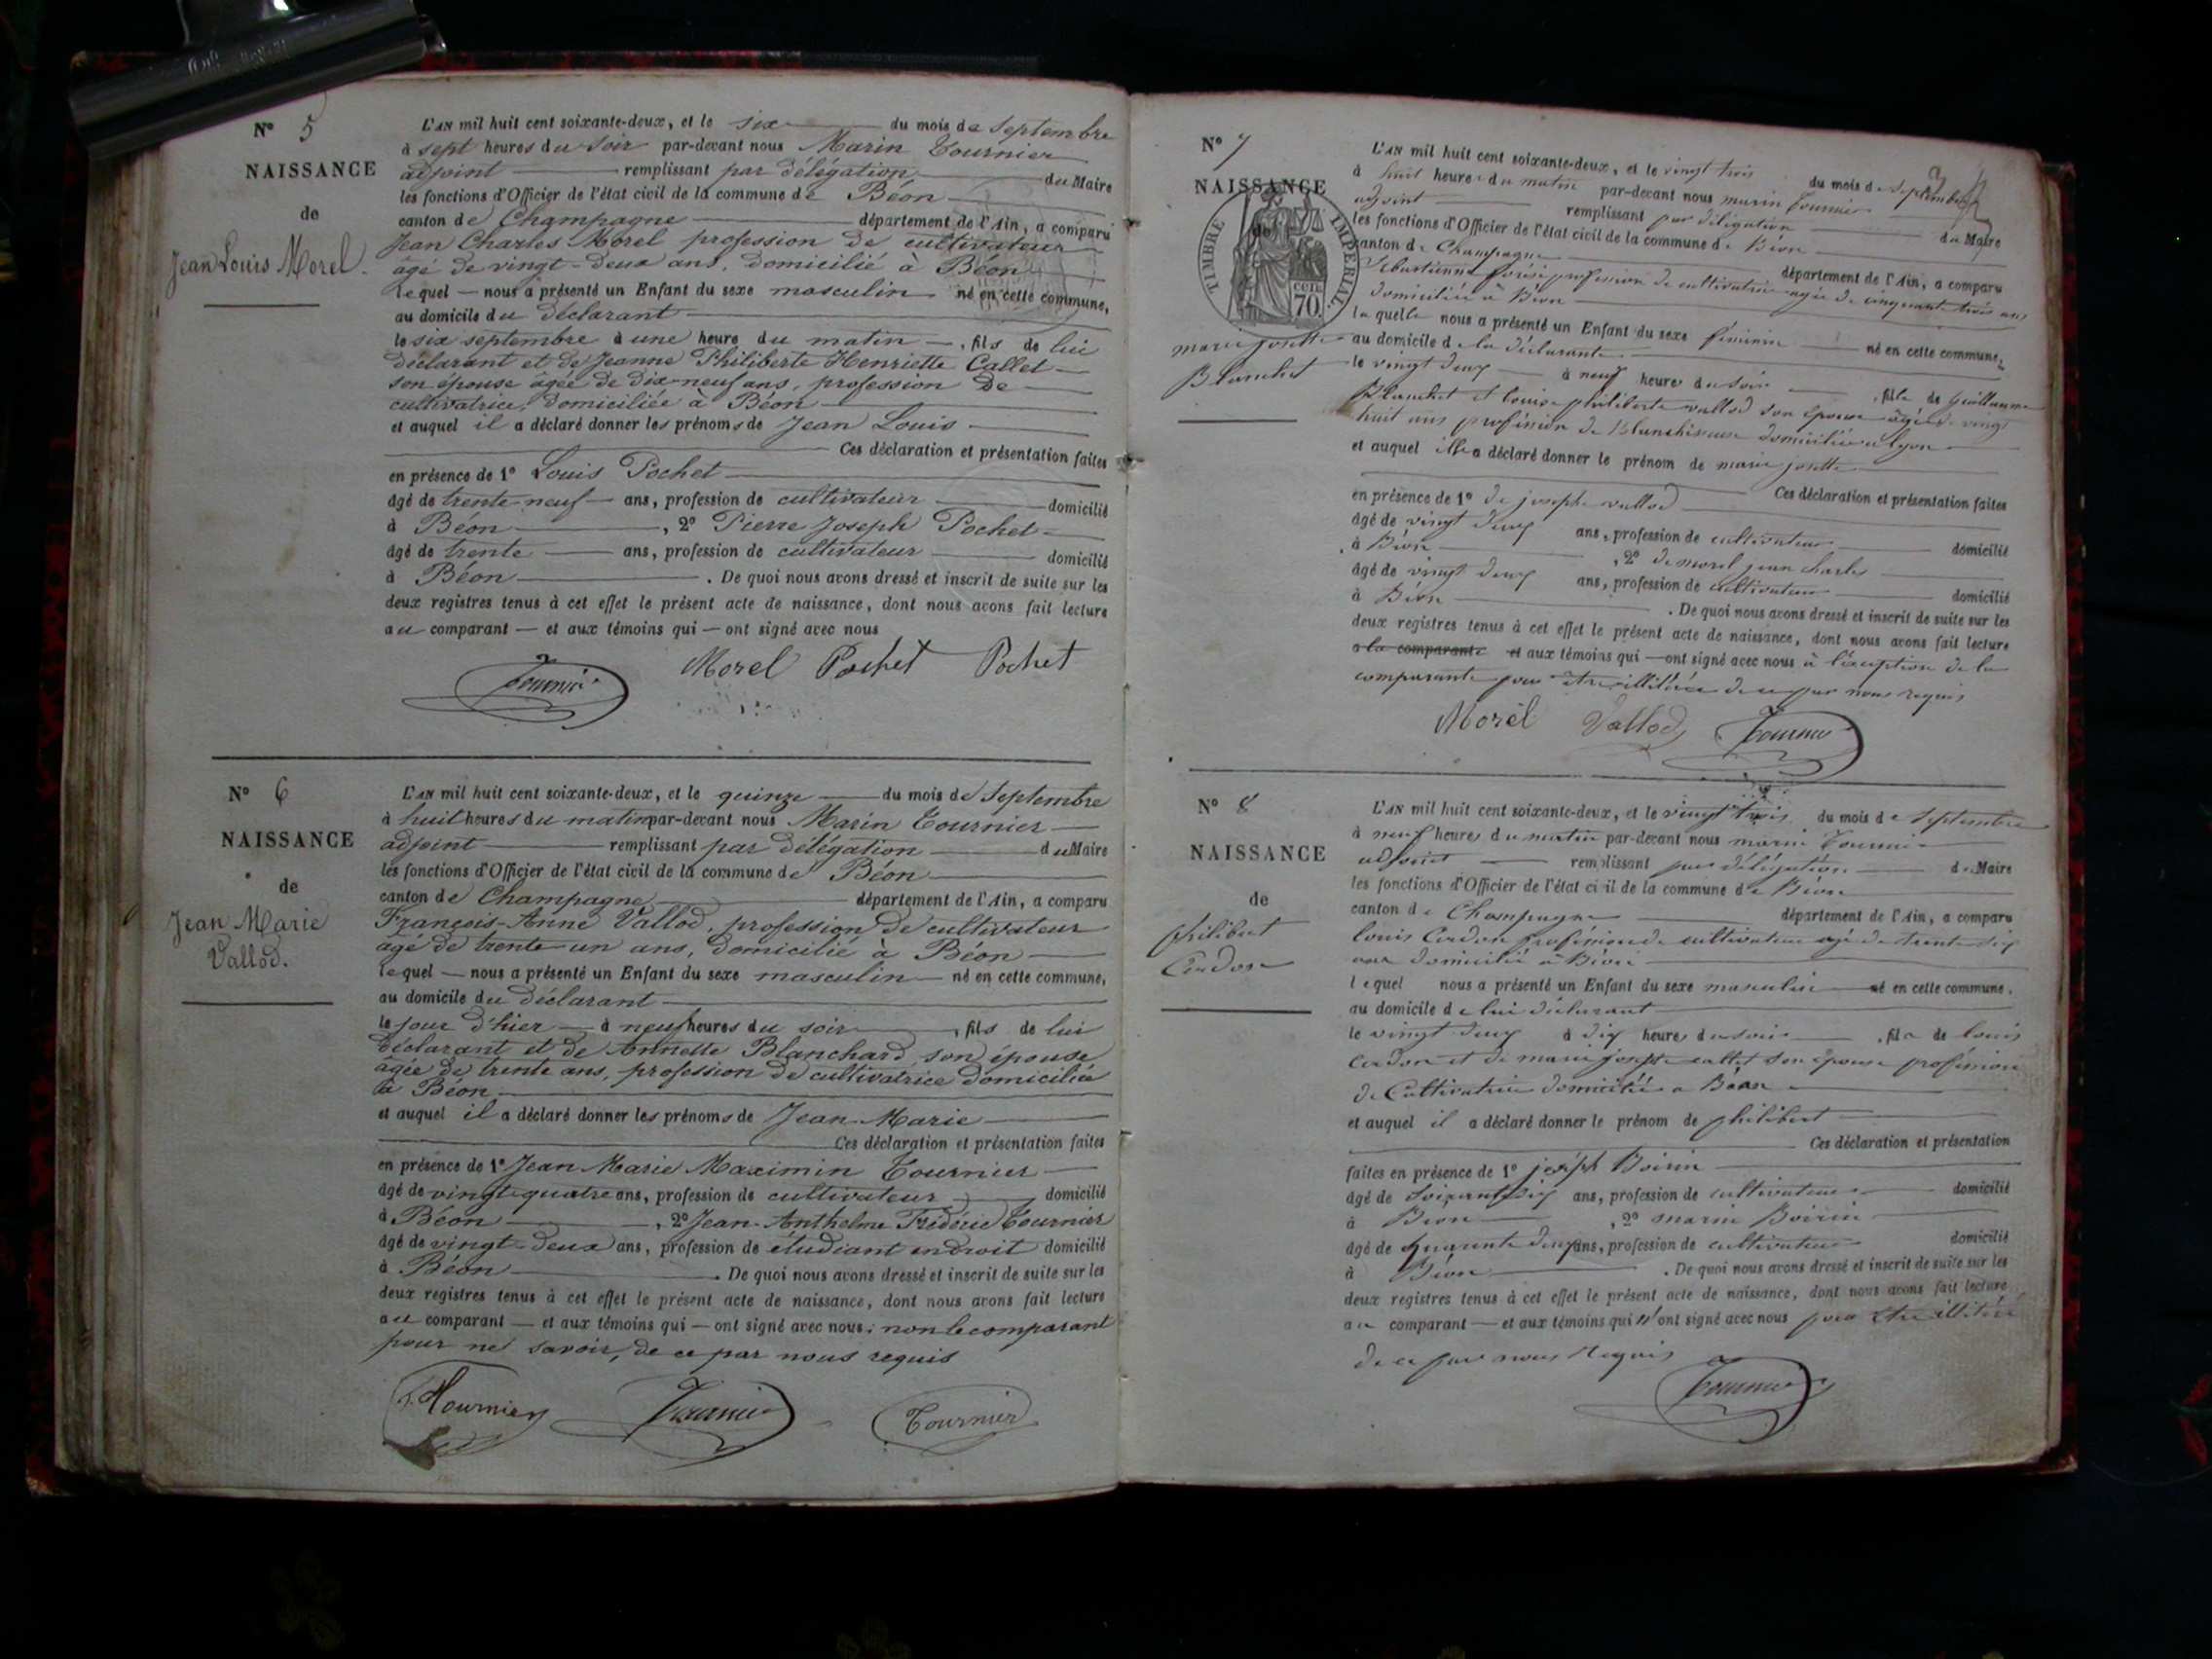 N° 5
NAISSANCE
de
Jean Louis Morel.
L'AN mil huit cent soixante-deux, et le six du mois de Septembre
à sept heures du soir par-devant nous Marin Tournier
adjoint remplissant par délégation du Maire
les fonctions d'Officier de l'état civil de la commune de Béon
canton de Champagne département de l'Ain, a comparu
Jean Charles Morel profession de cultivateur
âgé de vingt-deux ans, domicilié à Béon
lequel nous a présenté un Enfant du sexe masculin né en cette commune,
au domicile du déclarant
le six septembre à une heure du matin, fils de lui
déclarant et de Jeanne Philiberte Henriette Callet
son épouse âgée de dix-neuf ans, profession de
cultivatrice, domiciliée à Béon
et auquel il a déclaré donner les prénoms de Jean Louis
Ces déclaration et présentation faites
en présence de 1° Louis Pochet
âgé de trente-neuf ans, profession de cultivateur domicilié
à Béon, 2° Pierre Joseph Pochet
âgé de trente ans, profession de cultivateur domicilié
à Béon. De quoi nous avons dressé et inscrit de suite sur les
deux registres tenus à cet effet le présent acte de naissance, dont nous avons fait lecture
au comparant et aux témoins qui ont signé avec nous
Tournier Morel Pochet Pochet
N° 6
NAISSANCE
de
Jean Marie
Vallod.
L'AN mil huit cent soixante-deux, et le quinze du mois de Septembre
à huit heures du matin par-devant nous Marin Tournier
adjoint remplissant par délégation du Maire
les fonctions d'Officier de l'état civil de la commune de Béon
canton de Champagne département de l'Ain, a comparu
François-Anne Vallod, profession de cultivateur
âgé de trente-un ans, domicilié à Béon
lequel nous a présenté un Enfant du sexe masculin né en cette commune,
au domicile du déclarant
le jour d'hier à neuf heures du soir, fils de lui
déclarant et de Annette Blanchard son épouse
âgée de trente ans, profession de cultivatrice domiciliée
à Béon
et auquel il a déclaré donner les prénoms de Jean-Marie
Ces déclaration et présentation faites
en présence de 1° Jean Marie Maximin Tournier
âgé de vingt-quatre ans, profession de cultivateur domicilié
à Béon, 2° Jean-Anthelme Frédéric Tournier
âgé de vingt-deux ans, profession de étudiant en droit domicilié
à Béon. De quoi nous avons dressé et inscrit de suite sur les
deux registres tenus à cet effet le présent acte de naissance, dont nous avons fait lecture
au comparant et aux témoins qui ont signé avec nous; non le comparant
pour ne savoir, de ce par nous requis
Tournier Tournier Tournier
N° 7
NAISSANCE
de
TIMBRE IMPERIAL
70.
marie josette
Blanchet
L'AN mil huit cent soixante-deux, et le vingt trois du mois de Septembre
à huit heures du matin par-devant nous marin Tournier
adjoint remplissant par délégation du Maire
les fonctions d'Officier de l'état civil de la commune de Béon
canton de Champagne département de l'Ain, a comparu
profession de cultivatrice agée de cinquante trois ans
domiciliée à Béon
laquelle nous a présenté un Enfant du sexe féminin né en cette commune,
au domicile de la déclarante
le vingt deux à neuf heures du soir, fille de Guillaume
Blanchet et louise philiberte vallod son épouse âgée de vingt
huit ans profession de Blanchisseuse domiciliée a lyon
et auquel elle a déclaré donner le prénom de marie josette
Ces déclaration et présentation faites
en présence de 1° de joseph vallod
âgé de vingt deux ans, profession de cultivateur domicilié
à Béon, 2° de morel jean charles
âgé de vingt deux ans, profession de cultivateur domicilié
à Béon. De quoi nous avons dressé et inscrit de suite sur les
deux registres tenus à cet effet le présent acte de naissance, dont nous avons fait lecture
a la comparante et aux témoins qui ont signé avec nous à l'exception de la
comparante pour être illitérée de ce par nous requis
Morel Vallod Tournier
N° 8
NAISSANCE
de
philibert
Cordon
L'AN mil huit cent soixante-deux, et le vingt trois du mois de Septembre
à neuf heures du matin par-devant nous marin Tournier
adjoint remplissant par délégation du Maire
les fonctions d'Officier de l'état civil de la commune de Béon
canton de Champagne département de l'Ain, a comparu
louis Cordon profession de cultivateur agé de trente six
ans domicilié à Béon
lequel nous a présenté un Enfant du sexe masculin né en cette commune,
au domicile de lui déclarant
le vingt deux à dix heures du soir, fils de louis
Cordon et de marie josephte callet son épouse profession
de Cultivatrice domiciliée a Béon
et auquel il a déclaré donner le prénom de philibert
Ces déclaration et présentation
faites en présence de 1° joseph Boirin
âgé de Soixante dix ans, profession de cultivateur domicilié
à Béon, 2° marin Boirin
âgé de quarante deux ans, profession de cultivateur domicilié
à Béon. De quoi nous avons dressé et inscrit de suite sur les
deux registres tenus à cet effet le présent acte de naissance, dont nous avons fait lecture
au comparant et aux témoins qui n'ont signé avec nous pour être illitéré
de ce par nous Requis
Tournier